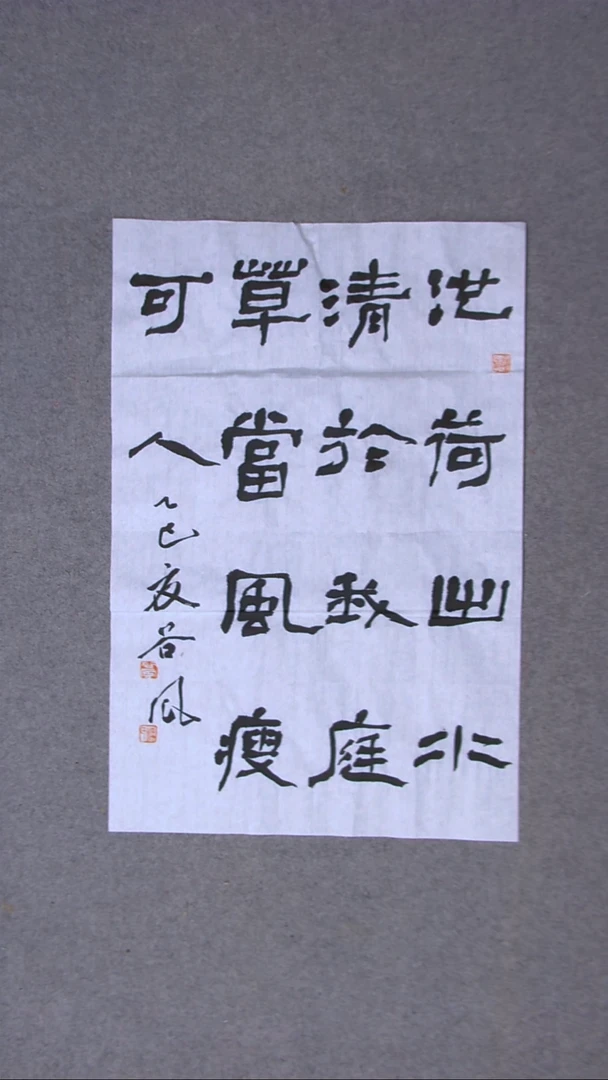 池荷出水
清於我庭
草當風瘦
可人
乙巳夏谷風